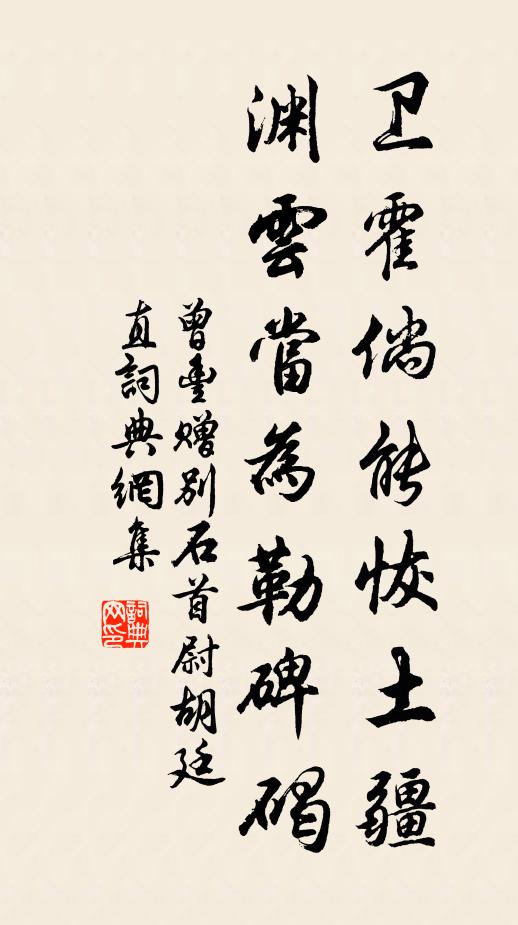 卫霍倘能恢土疆
渊雲當為勒碑碣
曾豊赠别石首尉胡廷
直詞典網集
詞典网印